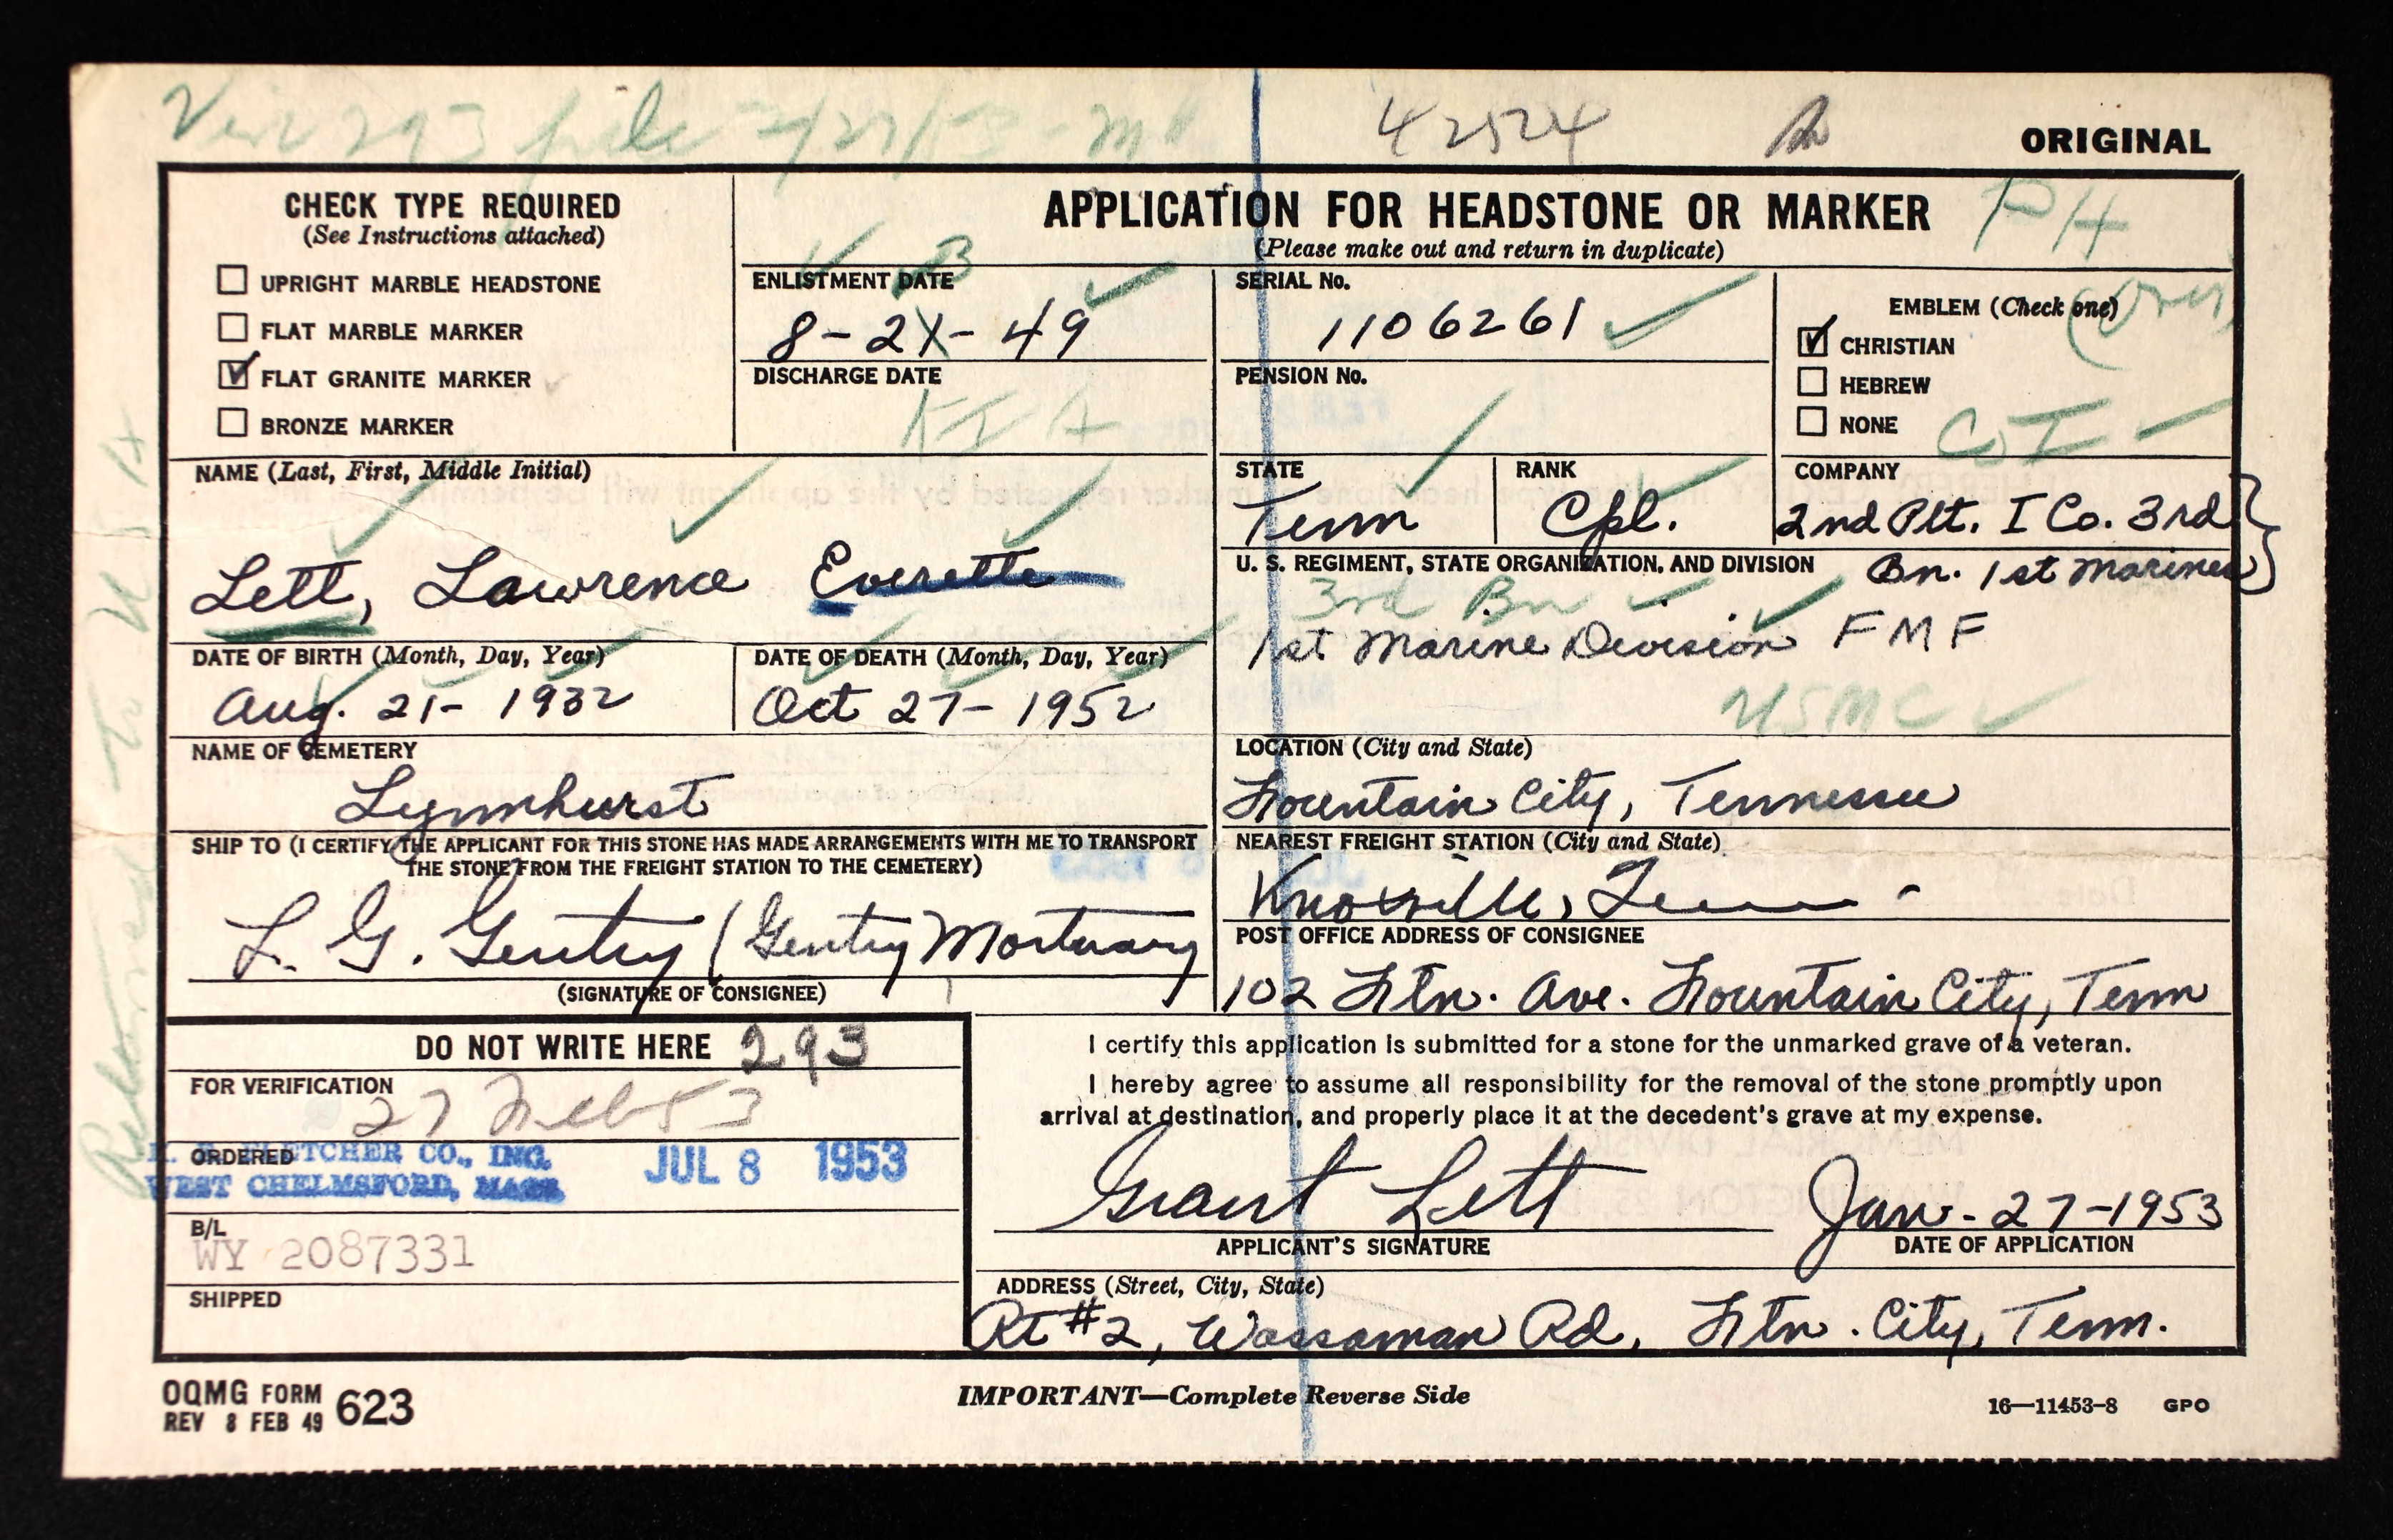 Ver 293 file 2/27/53 - M
42524
ORIGINAL
CHECK TYPE REQUIRED
(See Instructions attached)
UPRIGHT MARBLE HEADSTONE
FLAT MARBLE MARKER
FLAT GRANITE MARKER
BRONZE MARKER
APPLICATION FOR HEADSTONE OR MARKER
PH
(Please make out and return in duplicate)
ENLISTMENT DATE
8-21-49
SERIAL No.
1106261
EMBLEM (Check one)
(over)
CHRISTIAN
HEBREW
NONE
DISCHARGE DATE
KIA
PENSION No.
NAME (Last, First, Middle Initial)
Lett, Lawrence Everette
STATE
Tenn
RANK
Cpl.
COMPANY
2nd Plt. I Co. 3rd
Bn. 1st Marines
U. S. REGIMENT, STATE ORGANIZATION, AND DIVISION
3rd Bn
1st Marine Division FMF
USMC
DATE OF BIRTH (Month, Day, Year)
Aug. 21- 1932
DATE OF DEATH (Month, Day, Year)
Oct 27- 1952
NAME OF CEMETERY
Lynnhurst
LOCATION (City and State)
Fountain City, Tennessee
SHIP TO (I CERTIFY THE APPLICANT FOR THIS STONE HAS MADE ARRANGEMENTS WITH ME TO TRANSPORT
THE STONE FROM THE FREIGHT STATION TO THE CEMETERY)
L. G. Gentry (Gentry Mortuary
(SIGNATURE OF CONSIGNEE)
NEAREST FREIGHT STATION (City and State)
Knoxville, Tenn
POST OFFICE ADDRESS OF CONSIGNEE
102 Ftn. Ave. Fountain City, Tenn
Returned to USA
DO NOT WRITE HERE 293
FOR VERIFICATION
27 Feb 53
ORDERED
FLETCHER CO., INC.
WEST CHELMSFORD, MASS.
JUL 8 1953
B/L
WY 2087331
SHIPPED
I certify this application is submitted for a stone for the unmarked grave of a veteran.
I hereby agree to assume all responsibility for the removal of the stone promptly upon
arrival at destination, and properly place it at the decedent's grave at my expense.
Grant Lett
APPLICANT'S SIGNATURE
Jan.- 27-1953
DATE OF APPLICATION
ADDRESS (Street, City, State)
Rt #2, Wassaman Rd, Ftn. City, Tenn.
OQMG FORM 623
REV 8 FEB 49
IMPORTANT—Complete Reverse Side
16—11453-8 GPO